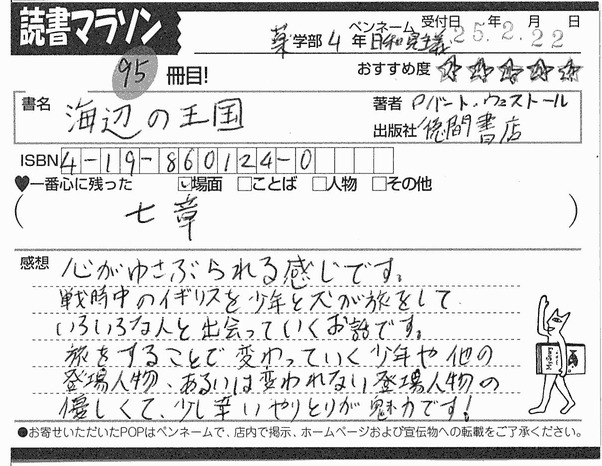 読書マラソン
95 冊目!
薬 学部 4 年 ペンネーム 日和見主義 受付日 25年2月22日
おすすめ度 ★★★★★
書名 海辺の王国
著者 ロバート・ウェストール
出版社 徳間書店
ISBN 4-19-860124-0
♥一番心に残った ☑場面 □ことば □人物 □その他
( 七章 )
感想 心がゆさぶられる感じです。
戦時中のイギリスを少年と犬が旅をして
いろいろな人と出会っていくお話です。
旅をすることで変わっていく少年や他の
登場人物、あるいは変われない登場人物の
優しくて、少し辛いやりとりが魅力です!
●お寄せいただいたPOPはペンネームで、店内で掲示、ホームページおよび宣伝物への転載をご了承ください。